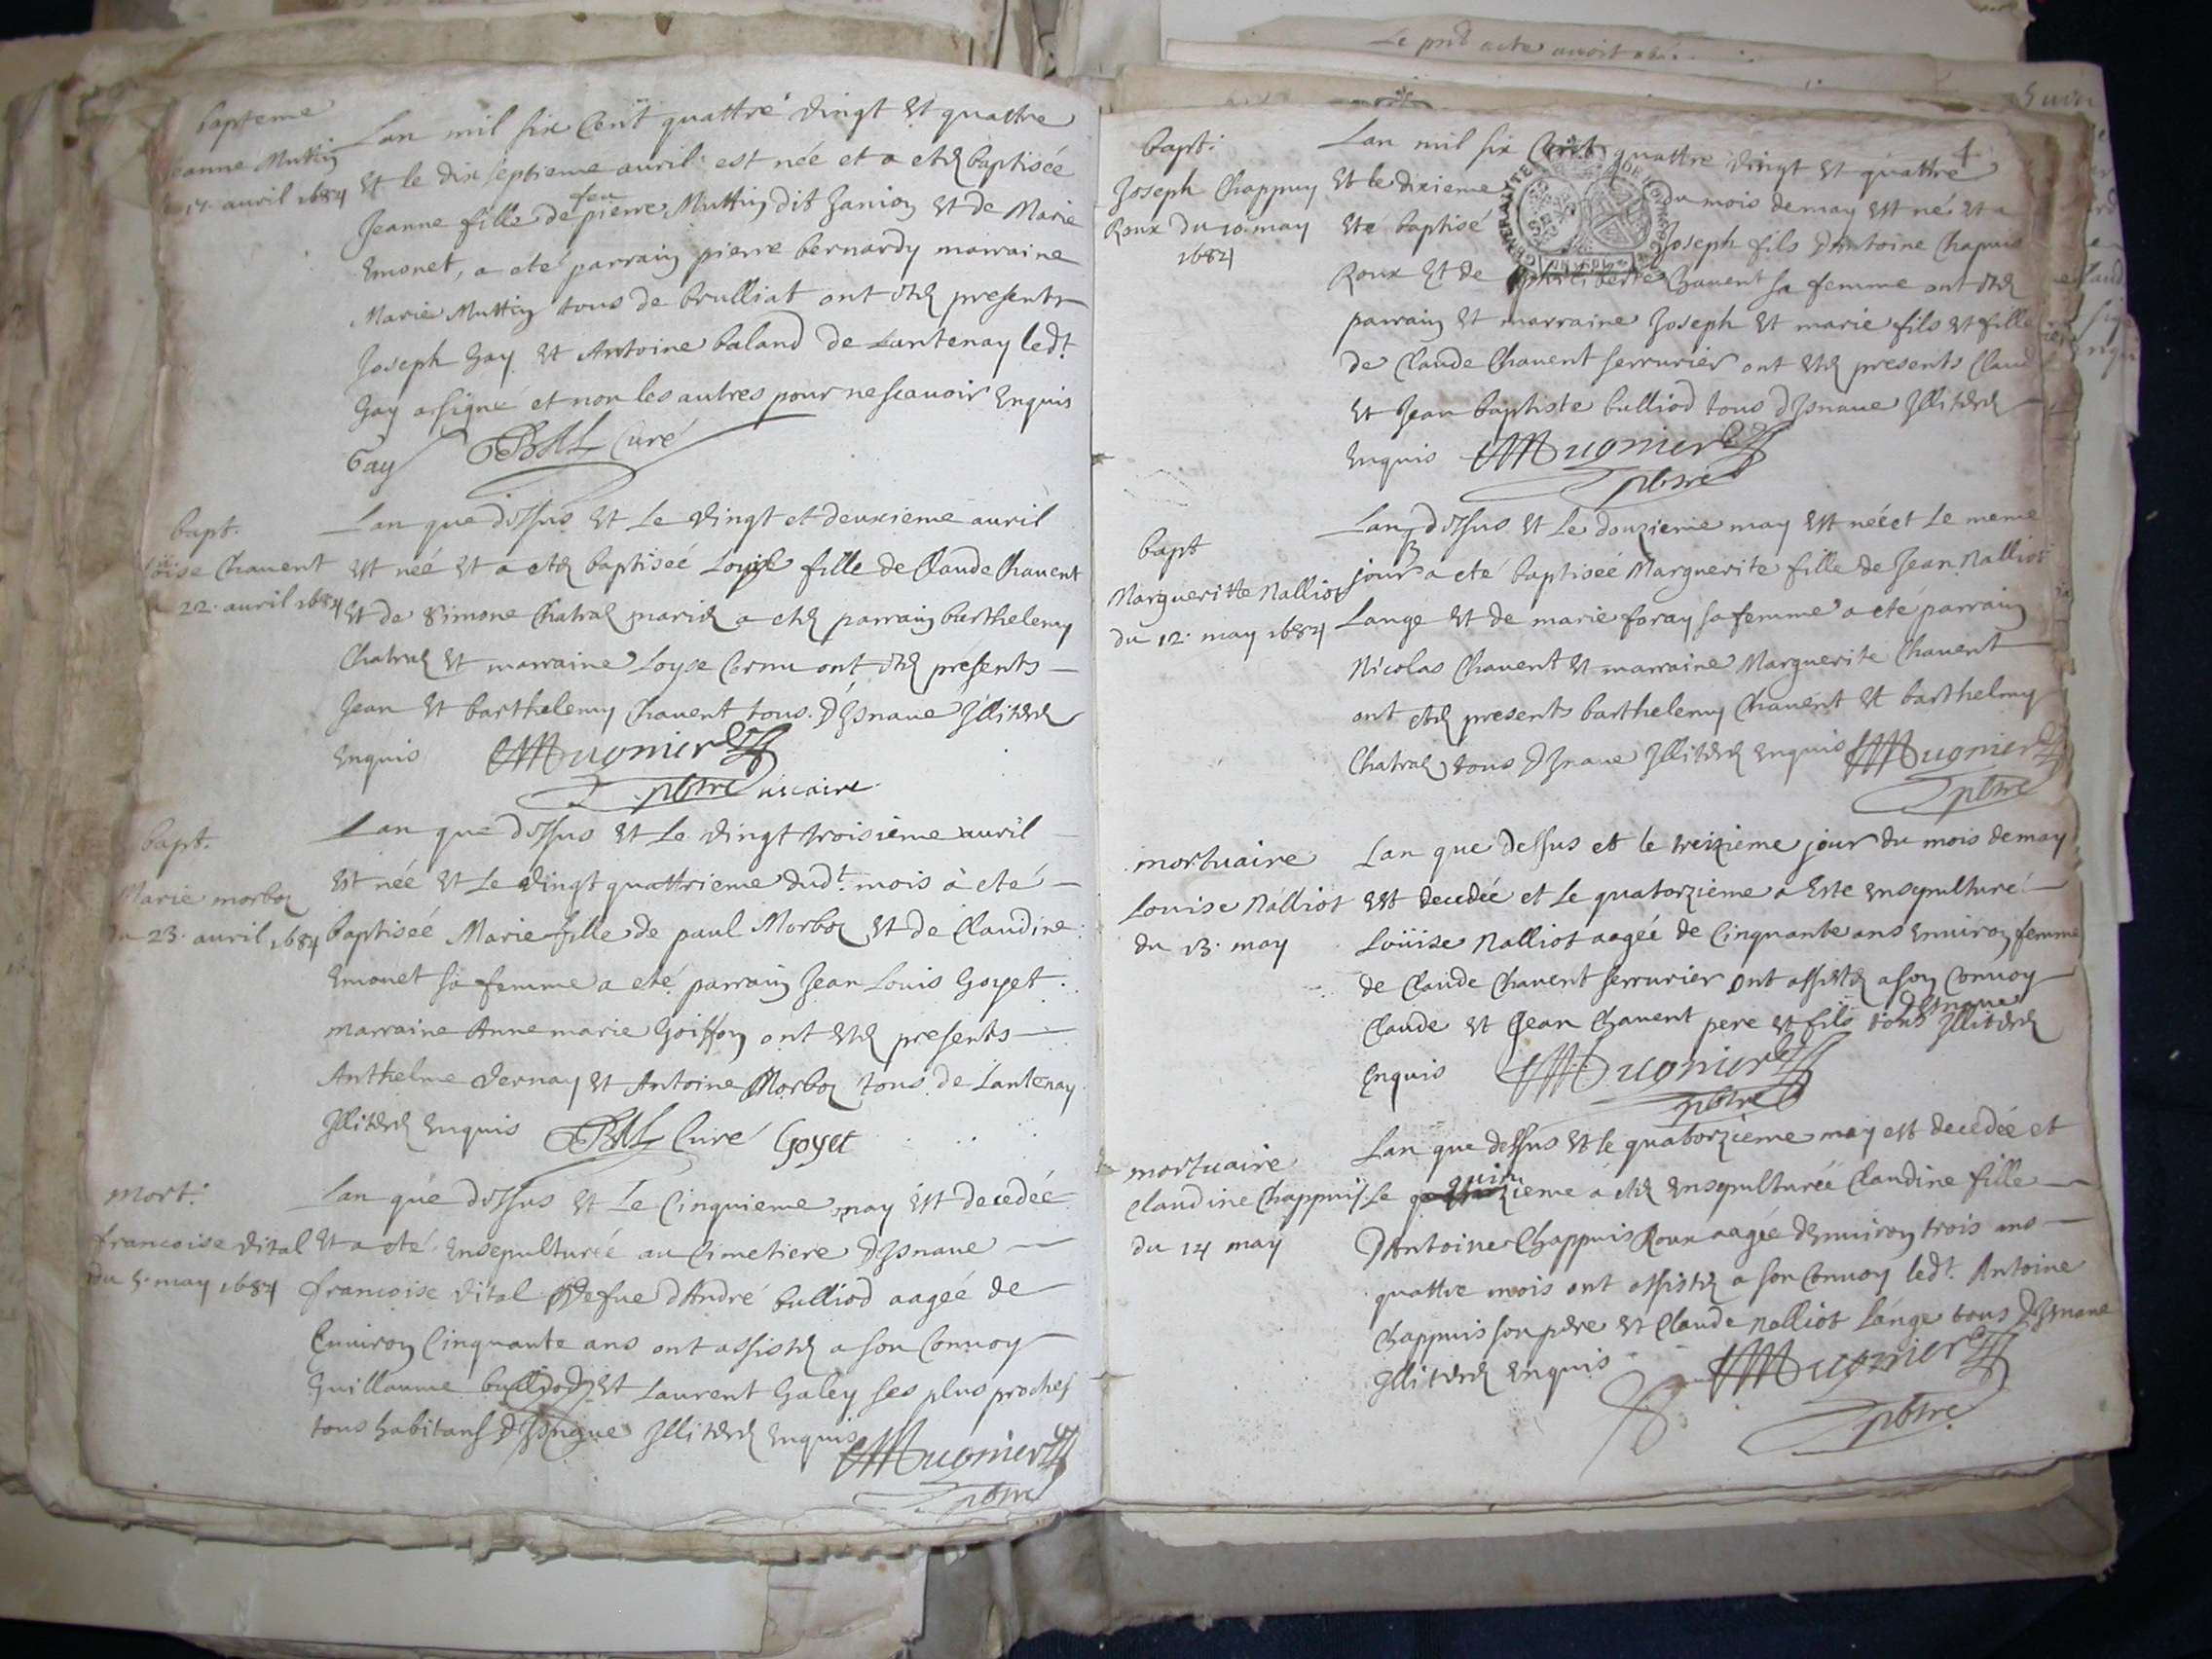 bapteme
Jeanne Muttin
17. auril 1684
Lan mil six Cent quattre vingt et quattre
et le dix septieme auril est née et a eté baptisée
Jeanne fille de feu pierre Muttin dit Janion et de Marie
Emonet, a eté parrain pierre bernardy marraine
Marie Muttin tous de brulliat ont été presents
Joseph Gay et Antoine baland de Lantenay ledt.
Gay a signé et non les autres pour ne scauoir Enquis
Gay Curé
bapt.
Loise Chauent
22. auril 1684
Lan que dessus et Le vingt et deuxieme auril
est née et a eté baptiseé Loyse fille de Claude Chauent
et de Simone Chatral mariés a eté parrain barthelemy
Chatral et marraine Loyse Cornu ont été présents
Jean et barthelemy Chauent tous d'Isnaue Illiteré
Enquis Mugnier
pbtre uicaire
bapt.
Marie morbo
du 23. auril 1684
Lan que dessus et Le vingt troisième auril
est née et Le vingt quattrieme dudt. mois à eté
baptiseé Marie fille de paul Morbo et de Claudine
Emonet sa femme a eté parrain Jean Louis Goyet
marraine Anne marie Goiffon ont eté presents
Anthelme Vernay et Antoine Morbo tous de Lantenay
Illiteré Enquis Curé Goyet
mort.
francoise Vital
du 5. may 1684
Lan que dessus et Le Cinquieme may est decedée
et a eté Ensepulturée au Cimetiere d'Isnaue
francoise Vital Vefue d'André bulliod aageé de
Enuiron Cinquante ans ont assisté a son Conuoy
Guillaume bulliod et Laurent Galey ses plus proches
tous habitans d'Isnaue Illiteré Enquis
Mugnier
pbtre
Le pnt acte auoit
4
bapt.
Joseph Chappuy
Roux du 10. may
1684
Lan mil six Cent quattre vingt et quattre
et le dixieme du mois de may est né et a
eté baptisé Joseph fils d'Antoine Chapuis
Roux et de philiberte Chauent sa femme ont été
parrain et marraine Joseph et marie fils et fille
de Claude Chauent serrurier ont eté presents Claud
et Jean baptiste bulliod tous d'Isnaue Illiteré
Enquis Mugnier
pbtre
bapt
Margueritte Nalliot
du 12. may 1684
Lan q dessus et Le douzieme may est née et Le meme
jour a eté baptiseé Marguerite fille de Jean Nalliot
Lange et de marie foray sa femme a eté parrain
Nicolas Chauent et marraine Marguerite Chauent
ont eté presents barthelemy Chauent et barthelemy
Chatral tous d'Isnaue Illiteré Enquis Mugnier
pbtre
mortuaire
Louise Nalliot
du 13. may
Lan que dessus et le treizieme jour du mois de may
est decedée et Le quatorzieme a Esté ensepulturé
Loüise Nalliot aageé de Cinquante ans Enuiron femme
de Claude Chauent serrurier ont assisté a son Conuoy
Claude et Jean Chauent pere et fils tous d'Isnaue Illiteré
Enquis Mugnier
pbtre
mortuaire
Claudine Chappuis
du 14 may
Lan que dessus et le quatorzieme may est decedée et
Le quinzieme a eté Ensepulturée Claudine fille
d'Antoine Chappuis Roux aagée d'Enuiron trois ans
quattre mois ont assisté a son Conuoy ledt. Antoine
Chappuis son pere et Claude Nalliot Lange tous d'Isnaue
Illiteré Enquis Mugnier
pbtre